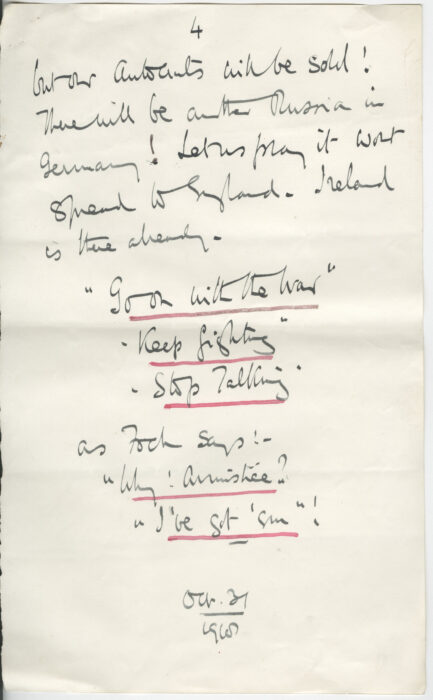 4
but our Autocrats will be sold!
There will be another Russia in
Germany! Let us pray it wont
spread to England. Ireland
is there already.
"Go on with the War"
"Keep fighting"
"Stop Talking"
as Foch says:-
"Why! Armistice?
"I've got 'em"!
Oct. 31
1918